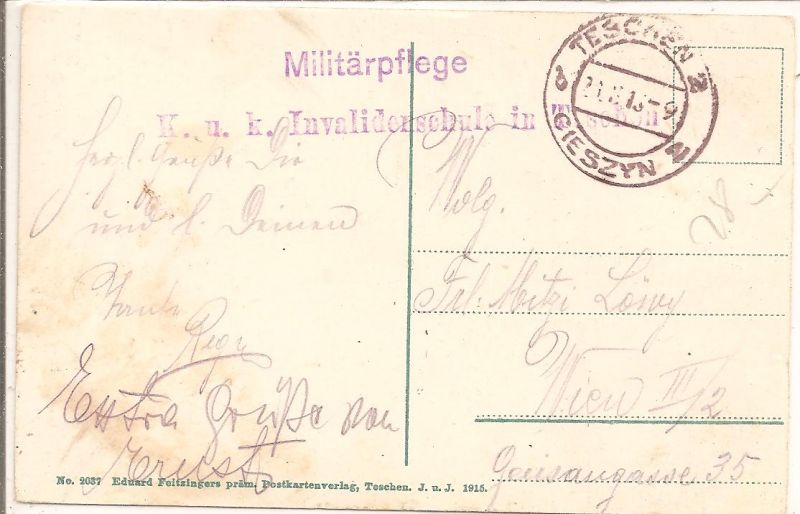 Militärpflege
K. u. k. Invalidenschule in Teschen
TESCHEN 2
CIESZYN
Herzl. Grüße Dir
und l. Deinen
Tante
Extra Grüße von
Ernst
Wolg.
Frl. Mitzi Löwy
Wien III/2
35
28
No. 2037 Eduard Feitzingers präm. Postkartenverlag, Teschen. J. u. J. 1915.